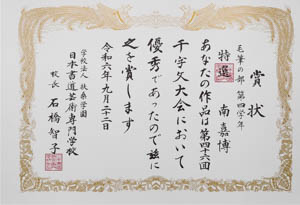 賞状
毛筆の部 第四学年
特選 南嘉博
あなたの作品は第四十六回
千字文大会において
優秀であったので茲に
之を賞します
令和六年九月二十二日
学校法人 扶桑学園
日本書道芸術専門学校
校長 石橋智子